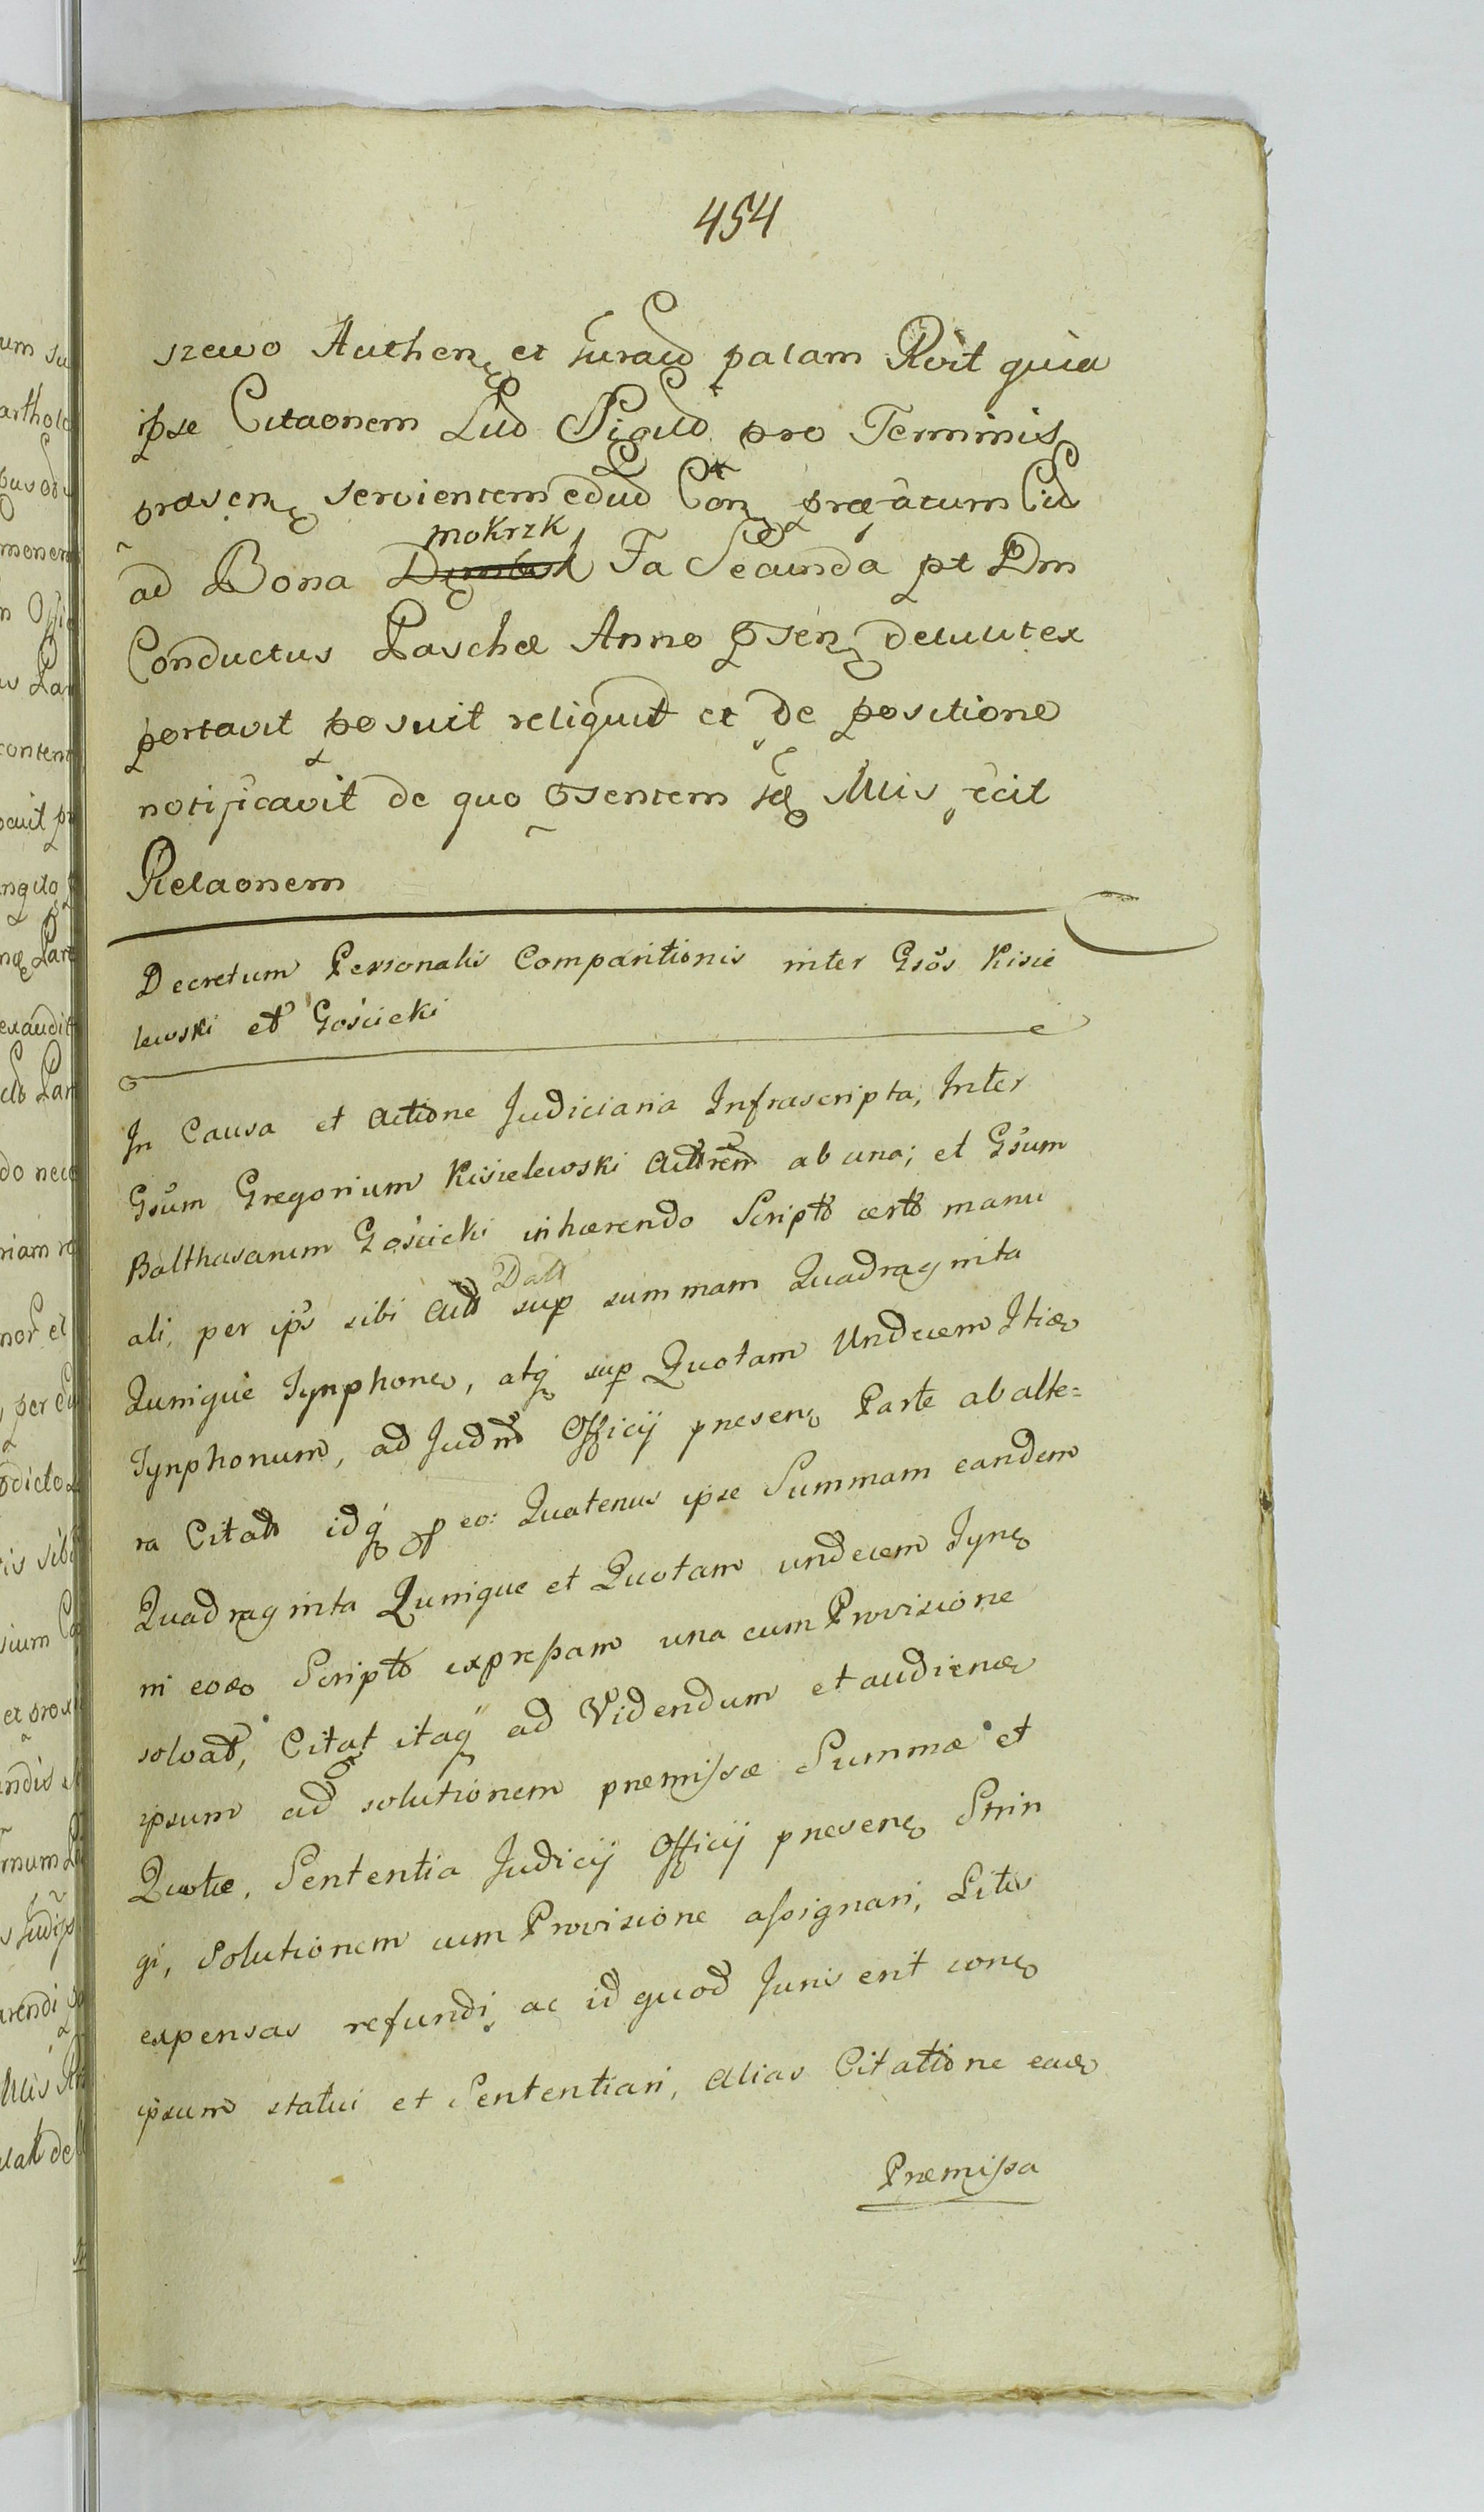 454
szewo Authen et Jurad palam Rvit quia
ipse Citaonem Lud Sigild pro Terminis
præsen servientem edud Con præatum Cid
mokrzk
ad Bona Fa Secunda pt Dm
Conductus Paschæ Anno psen detulit ex
portavit posuit reliquit et de positione
notificavit de quo psentem sæ Mis recit
Relaonem
Decretum Personalis Comparitionis inter Gsos Kisie
lewski et Gościcki
In Causa et Actione Judiciaria Infrascripta, Inter
Gsum Gregorium Kisielewski Actorem ab una; et Gsum
Balthasarum Gościcki inhærendo Scripto certo manu
ali, per ips sibi Act Dato sup summam Quadraginta
Quinque Tynphones, atq sup Quotam Undecem Itidem
Tynphonum, ad Judm Officij presen Parte ab alte=
ra Citato idq p eo: Quatenus ipse Summam eandem
Quadraginta Quinque et Quotam undecem Tyn
in eodem Scripto expressam una cum Provisione
solvat, Citat itaq ad Videndum et audiendum
ipsum ad solutionem premissæ Summæ et
Quotæ, Sententia Judicij Officij presen Strin
gi, Solutionem cum Provisione assignari, Litis
expensas refundi, ac id quod Juris erit con
ipsum statui et Sententiari, Alias Citatione eadem
Premissa